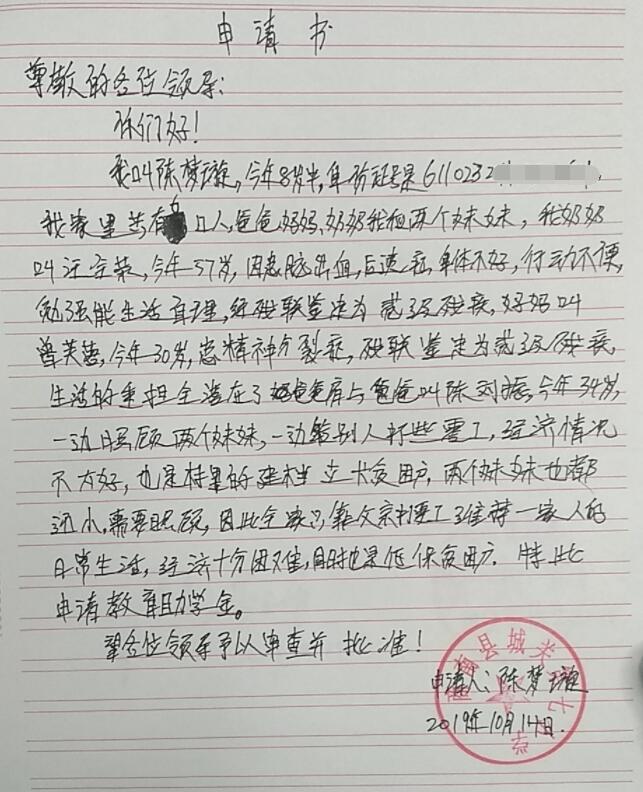 申请书
尊敬的各位领导:
你们好!
我叫陈梦璇,今年8岁半,身份证号是6110232
我家里共有6口人,爸爸妈妈、奶奶我和两个妹妹,我奶奶
叫汪荣,今年57岁,因患脑出血,后遗症,身体不好,行动不便,
勉强能生活自理,经残联鉴定为贰级残疾,妈妈叫
曾芙蓉,今年30岁,患精神分裂症,残联鉴定为贰级残疾,
生活的重担全落在了爸爸肩上爸爸叫陈刘,今年34岁,
一边照顾两个妹妹,一边给别人打些零工,经济情况
不太好,也是村里的建档立卡贫困户,两个妹妹也都
还小,需要照顾,因此全家只靠父亲打零工维持一家人的
日常生活,经济十分困难,同时也是低保贫困户.特此
申请教育助学金。
望各位领导予以审查并批准!
县城关
申请人:陈梦璇
2019年10月14日.